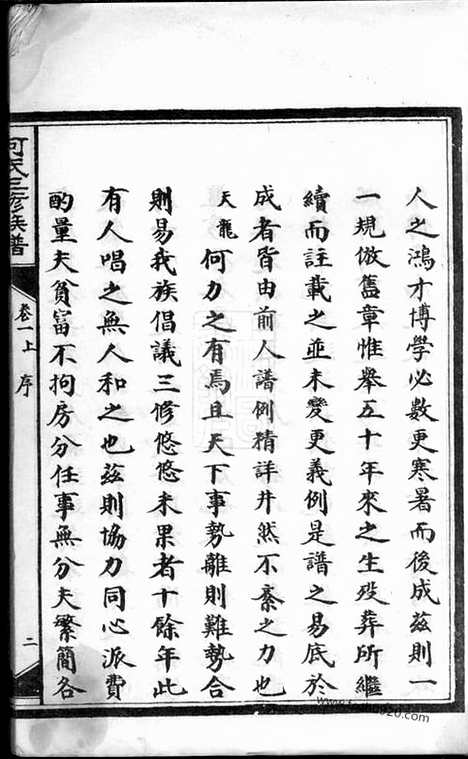 人之鴻才博學必數更寒暑而後成茲則一
一規倣舊章惟舉五十年來之生歿葬所繼
續而註載之並未變更義例是譜之易底於
成者皆由前人譜例精詳井然不紊之力也
天龍何力之有焉且天下事勢離則難勢合
則易我族倡議三修悠悠未果者十餘年此
有人唱之無人和之也茲則協力同心派費
酌量夫貧富不拘房分任事無分夫繁簡各
何氏三修族譜
卷一上 序
二